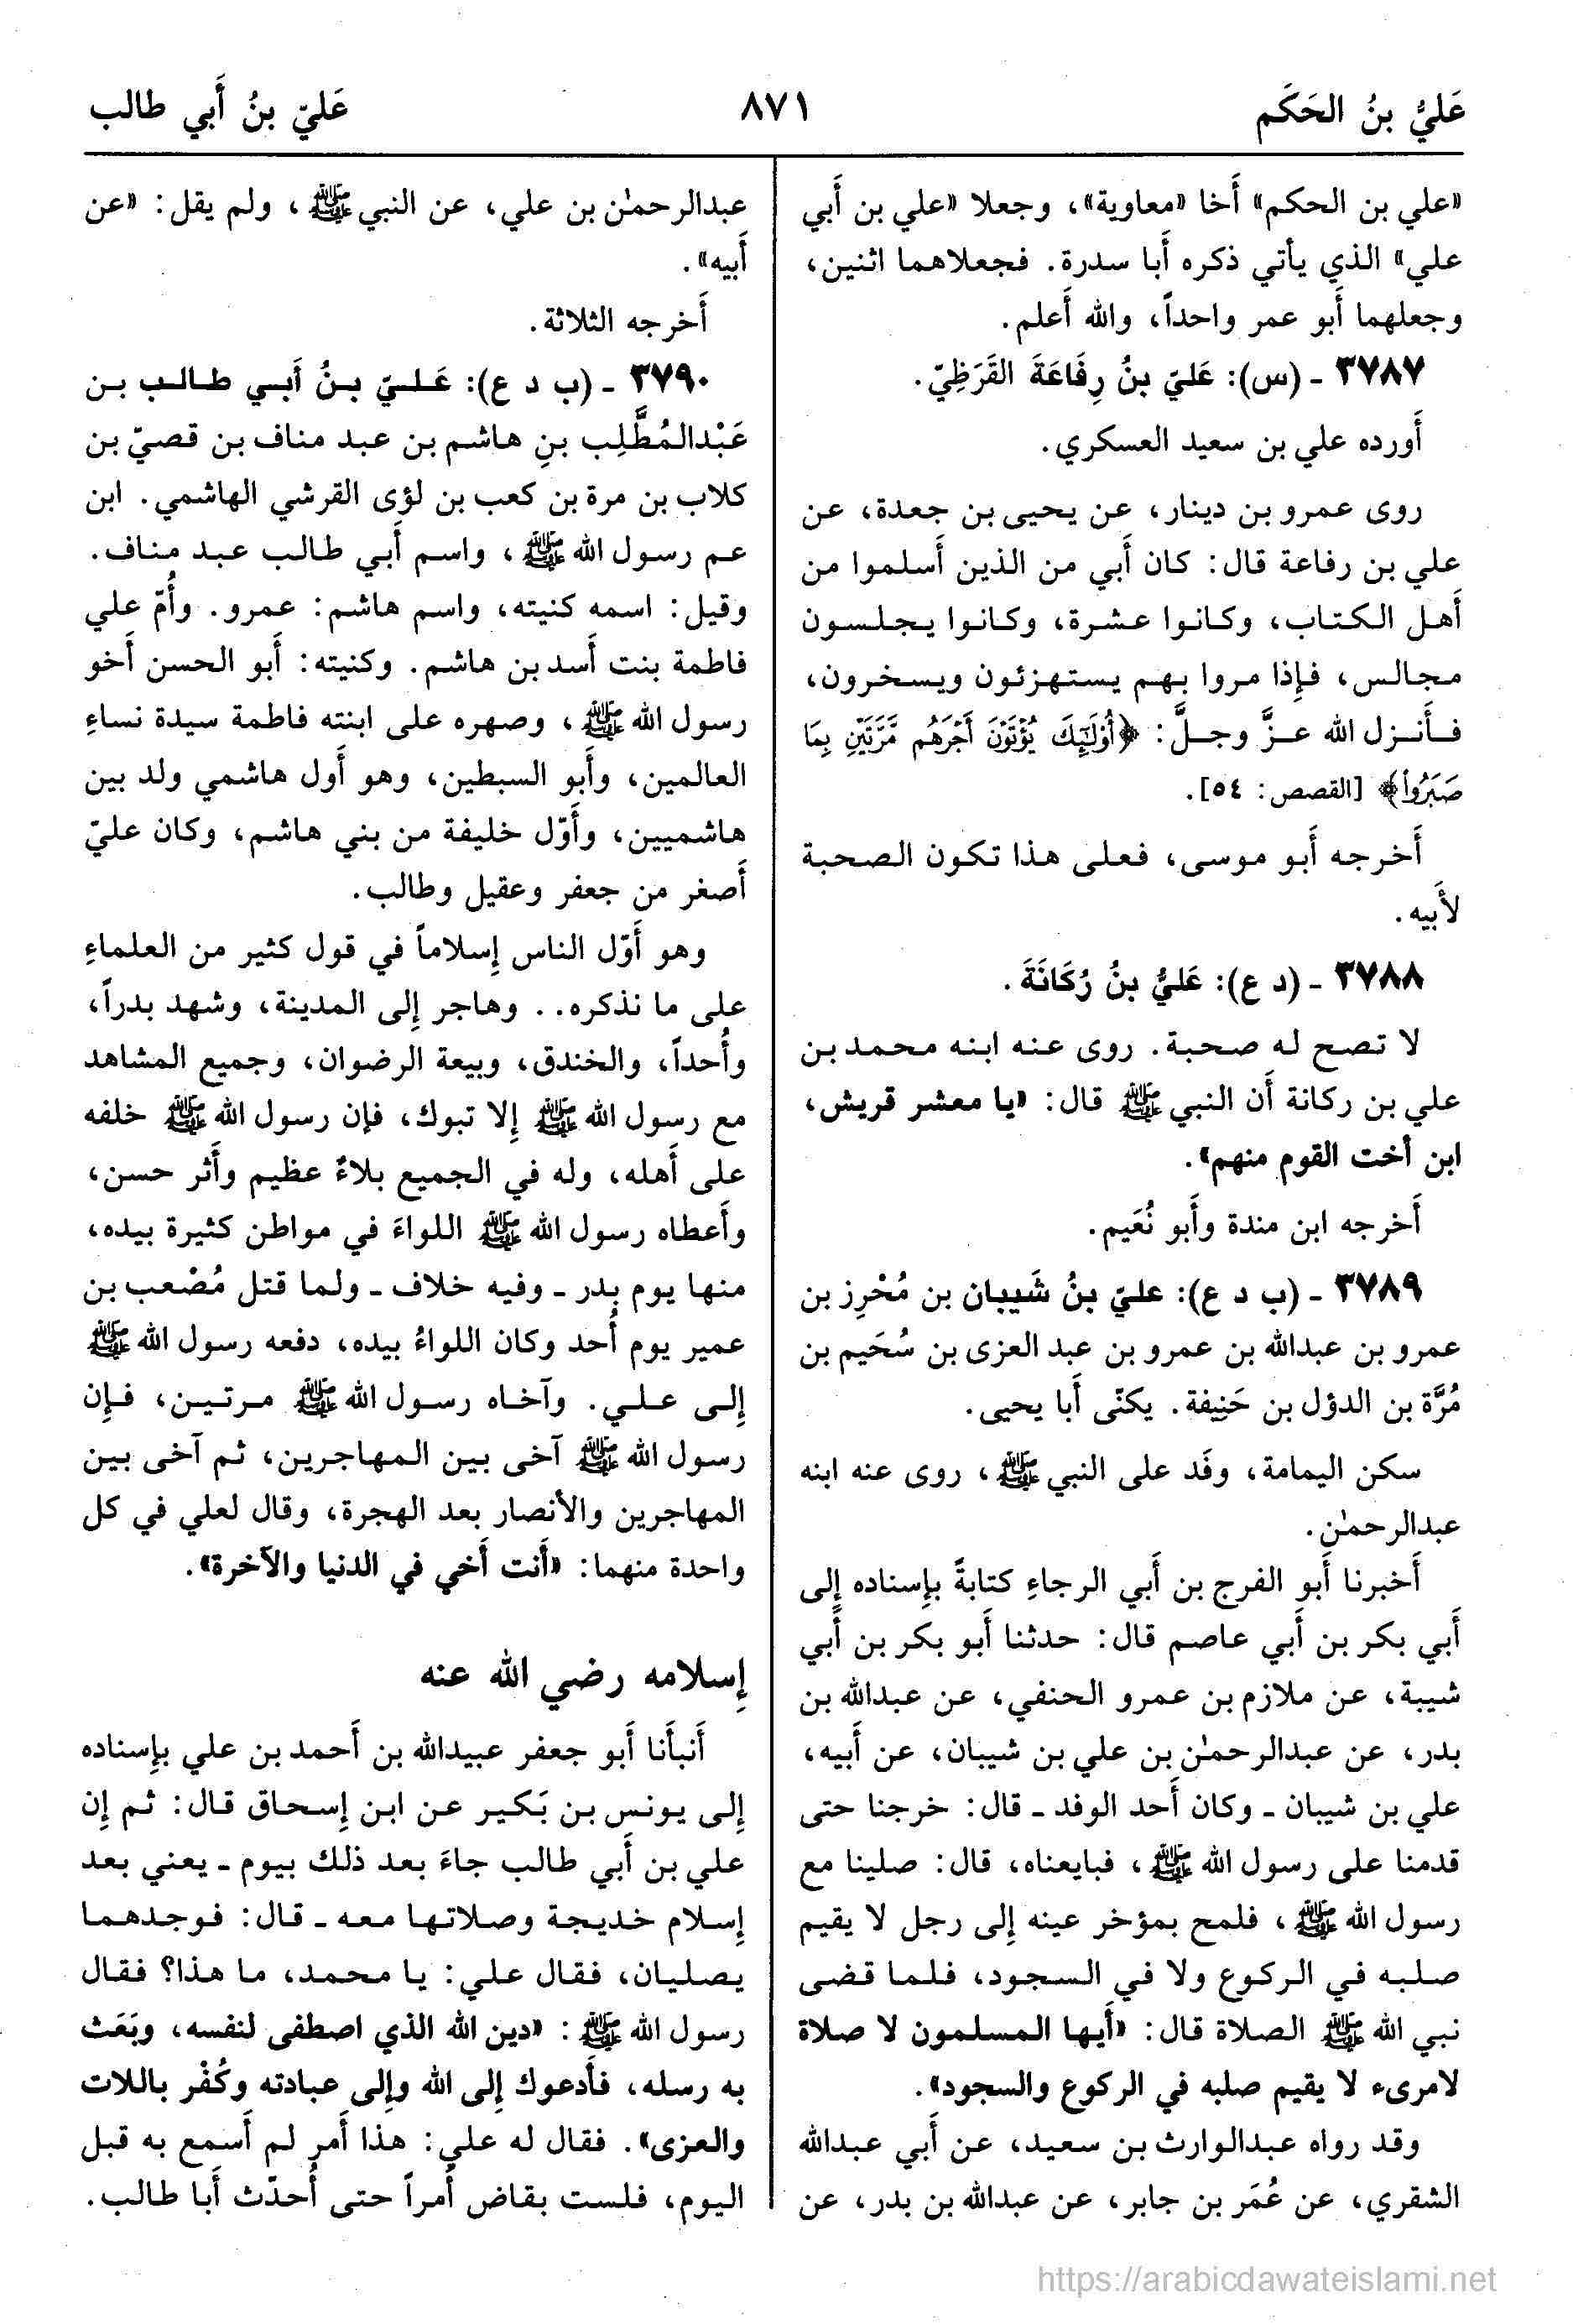 عَليُّ بنُ الحَكَم
٨٧١
عَليّ بنُ أَبي طالب
«علي بن الحكم» أَخا «معاوية»، وجعلا «علي بن أَبي
علي» الذي يأتي ذكره أَبا سدرة. فجعلاهما اثنين،
وجعلهما أَبو عمر واحداً، والله أَعلم.
٣٧٨٧ ـ (س): عَليّ بنُ رِفَاعَةَ القَرَظِيّ.
أَورده علي بن سعيد العسكري.
روى عمرو بن دينار، عن يحيى بن جعدة، عن
علي بن رفاعة قال: كان أَبي من الذين أَسلموا من
أَهل الكتاب، وكانوا عشرة، وكانوا يجلسون
مجالس، فإِذا مروا بهم يستهزئون ويسخرون،
فأَنزل الله عزَّ وجلَّ: ﴿أُوْلَٰٓئِكَ يُؤۡتَوۡنَ أَجۡرَهُم مَّرَّتَيۡنِ بِمَا
صَبَرُواْ﴾ [القصص: ٥٤].
أَخرجه أَبو موسى، فعلى هذا تكون الصحبة
لأَبيه.
٣٧٨٨ ـ (د ع): عَليُّ بنُ رُكَانَةَ.
لا تصح له صحبة. روى عنه ابنه محمد بن
علي بن ركانة أَن النبي ﷺ قال: «يا معشر قريش،
ابن أخت القوم منهم».
أَخرجه ابن مندة وأَبو نُعَيم.
٣٧٨٩ ـ (ب د ع): عليّ بنُ شَيبان بن مُحْرِز بن
عمرو بن عبدالله بن عمرو بن عبد العزى بن سُحَيم بن
مُرَّة بن الدؤل بن حَنِيفة. يكنّى أَبا يحيى.
سكن اليمامة، وفَد على النبي ﷺ، روى عنه ابنه
عبدالرحمٰن.
أَخبرنا أَبو الفرج بن أَبي الرجاءِ كتابةً بإِسناده إِلى
أَبي بكر بن أَبي عاصم قال: حدثنا أَبو بكر بن أَبي
شيبة، عن ملازم بن عمرو الحنفي، عن عبدالله بن
بدر، عن عبدالرحمٰن بن علي بن شيبان، عن أَبيه،
علي بن شيبان ـ وكان أَحد الوفد ـ قال: خرجنا حتى
قدمنا على رسول الله ﷺ، فبايعناه، قال: صلينا مع
رسول الله ﷺ، فلمح بمؤخر عينه إِلى رجل لا يقيم
صلبه في الركوع ولا في السجود، فلما قضى
نبي الله ﷺ الصلاة قال: «أَيها المسلمون لا صلاة
لامرىء لا يقيم صلبه في الركوع والسجود».
وقد رواه عبدالوارث بن سعيد، عن أَبي عبدالله
الشقري، عن عُمَر بن جابر، عن عبدالله بن بدر، عن
عبدالرحمٰن بن علي، عن النبي ﷺ، ولم يقل: «عن
أَبيه».
أَخرجه الثلاثة.
٣٧٩٠ ـ (ب د ع): عَليّ بنُ أَبي طالب بن
عَبْدالمُطَّلِب بنِ هاشم بن عبد مناف بن قصيّ بن
كلاب بن مرة بن كعب بن لؤى القرشي الهاشمي. ابن
عم رسول الله ﷺ، واسم أَبي طالب عبد مناف.
وقيل: اسمه كنيته، واسم هاشم: عمرو. وأُمّ علي
فاطمة بنت أَسد بن هاشم. وكنيته: أَبو الحسن أَخو
رسول الله ﷺ، وصهره على ابنته فاطمة سيدة نساءِ
العالمين، وأَبو السبطين، وهو أَول هاشمي ولد بين
هاشميين، وأَوّل خليفة من بني هاشم، وكان عليّ
أَصغر من جعفر وعقيل وطالب.
وهو أَوّل الناس إِسلاماً في قول كثير من العلماءِ
على ما نذكره.. وهاجر إِلى المدينة، وشهد بدراً،
وأُحداً، والخندق، وبيعة الرضوان، وجميع المشاهد
مع رسول الله ﷺ إِلا تبوك، فإن رسول الله ﷺ خلفه
على أَهله، وله في الجميع بلاءٌ عظيم وأَثر حسن،
وأَعطاه رسول الله ﷺ اللواءَ في مواطن كثيرة بيده،
منها يوم بدر ـ وفيه خلاف ـ ولما قتل مُصْعب بن
عمير يوم أُحد وكان اللواءُ بيده، دفعه رسول الله ﷺ
إِلى علي. وآخاه رسول الله ﷺ مرتين، فإِن
رسول الله ﷺ آخى بين المهاجرين، ثم آخى بين
المهاجرين والأنصار بعد الهجرة، وقال لعلي في كل
واحدة منهما: «أَنت أَخي في الدنيا والآخرة».
إِسلامه رضي الله عنه
أَنبأَنا أَبو جعفر عبيدالله بن أَحمد بن علي بإِسناده
إِلى يونس بن بَكير عن ابن إِسحاق قال: ثم إِن
علي بن أَبي طالب جاءَ بعد ذلك بيوم ـ يعني بعد
إِسلام خديجة وصلاتها معه ـ قال: فوجدهما
يصليان، فقال علي: يا محمد، ما هذا؟ فقال
رسول الله ﷺ: «دين الله الذي اصطفى لنفسه، وبَعَث
به رسله، فأَدعوك إِلى الله وإِلى عبادته وكُفْر باللات
والعزى». فقال له علي: هذا أَمر لم أَسمع به قبل
اليوم، فلست بقاض أَمراً حتى أُحدّث أَبا طالب.
https://arabicdawateislami.net